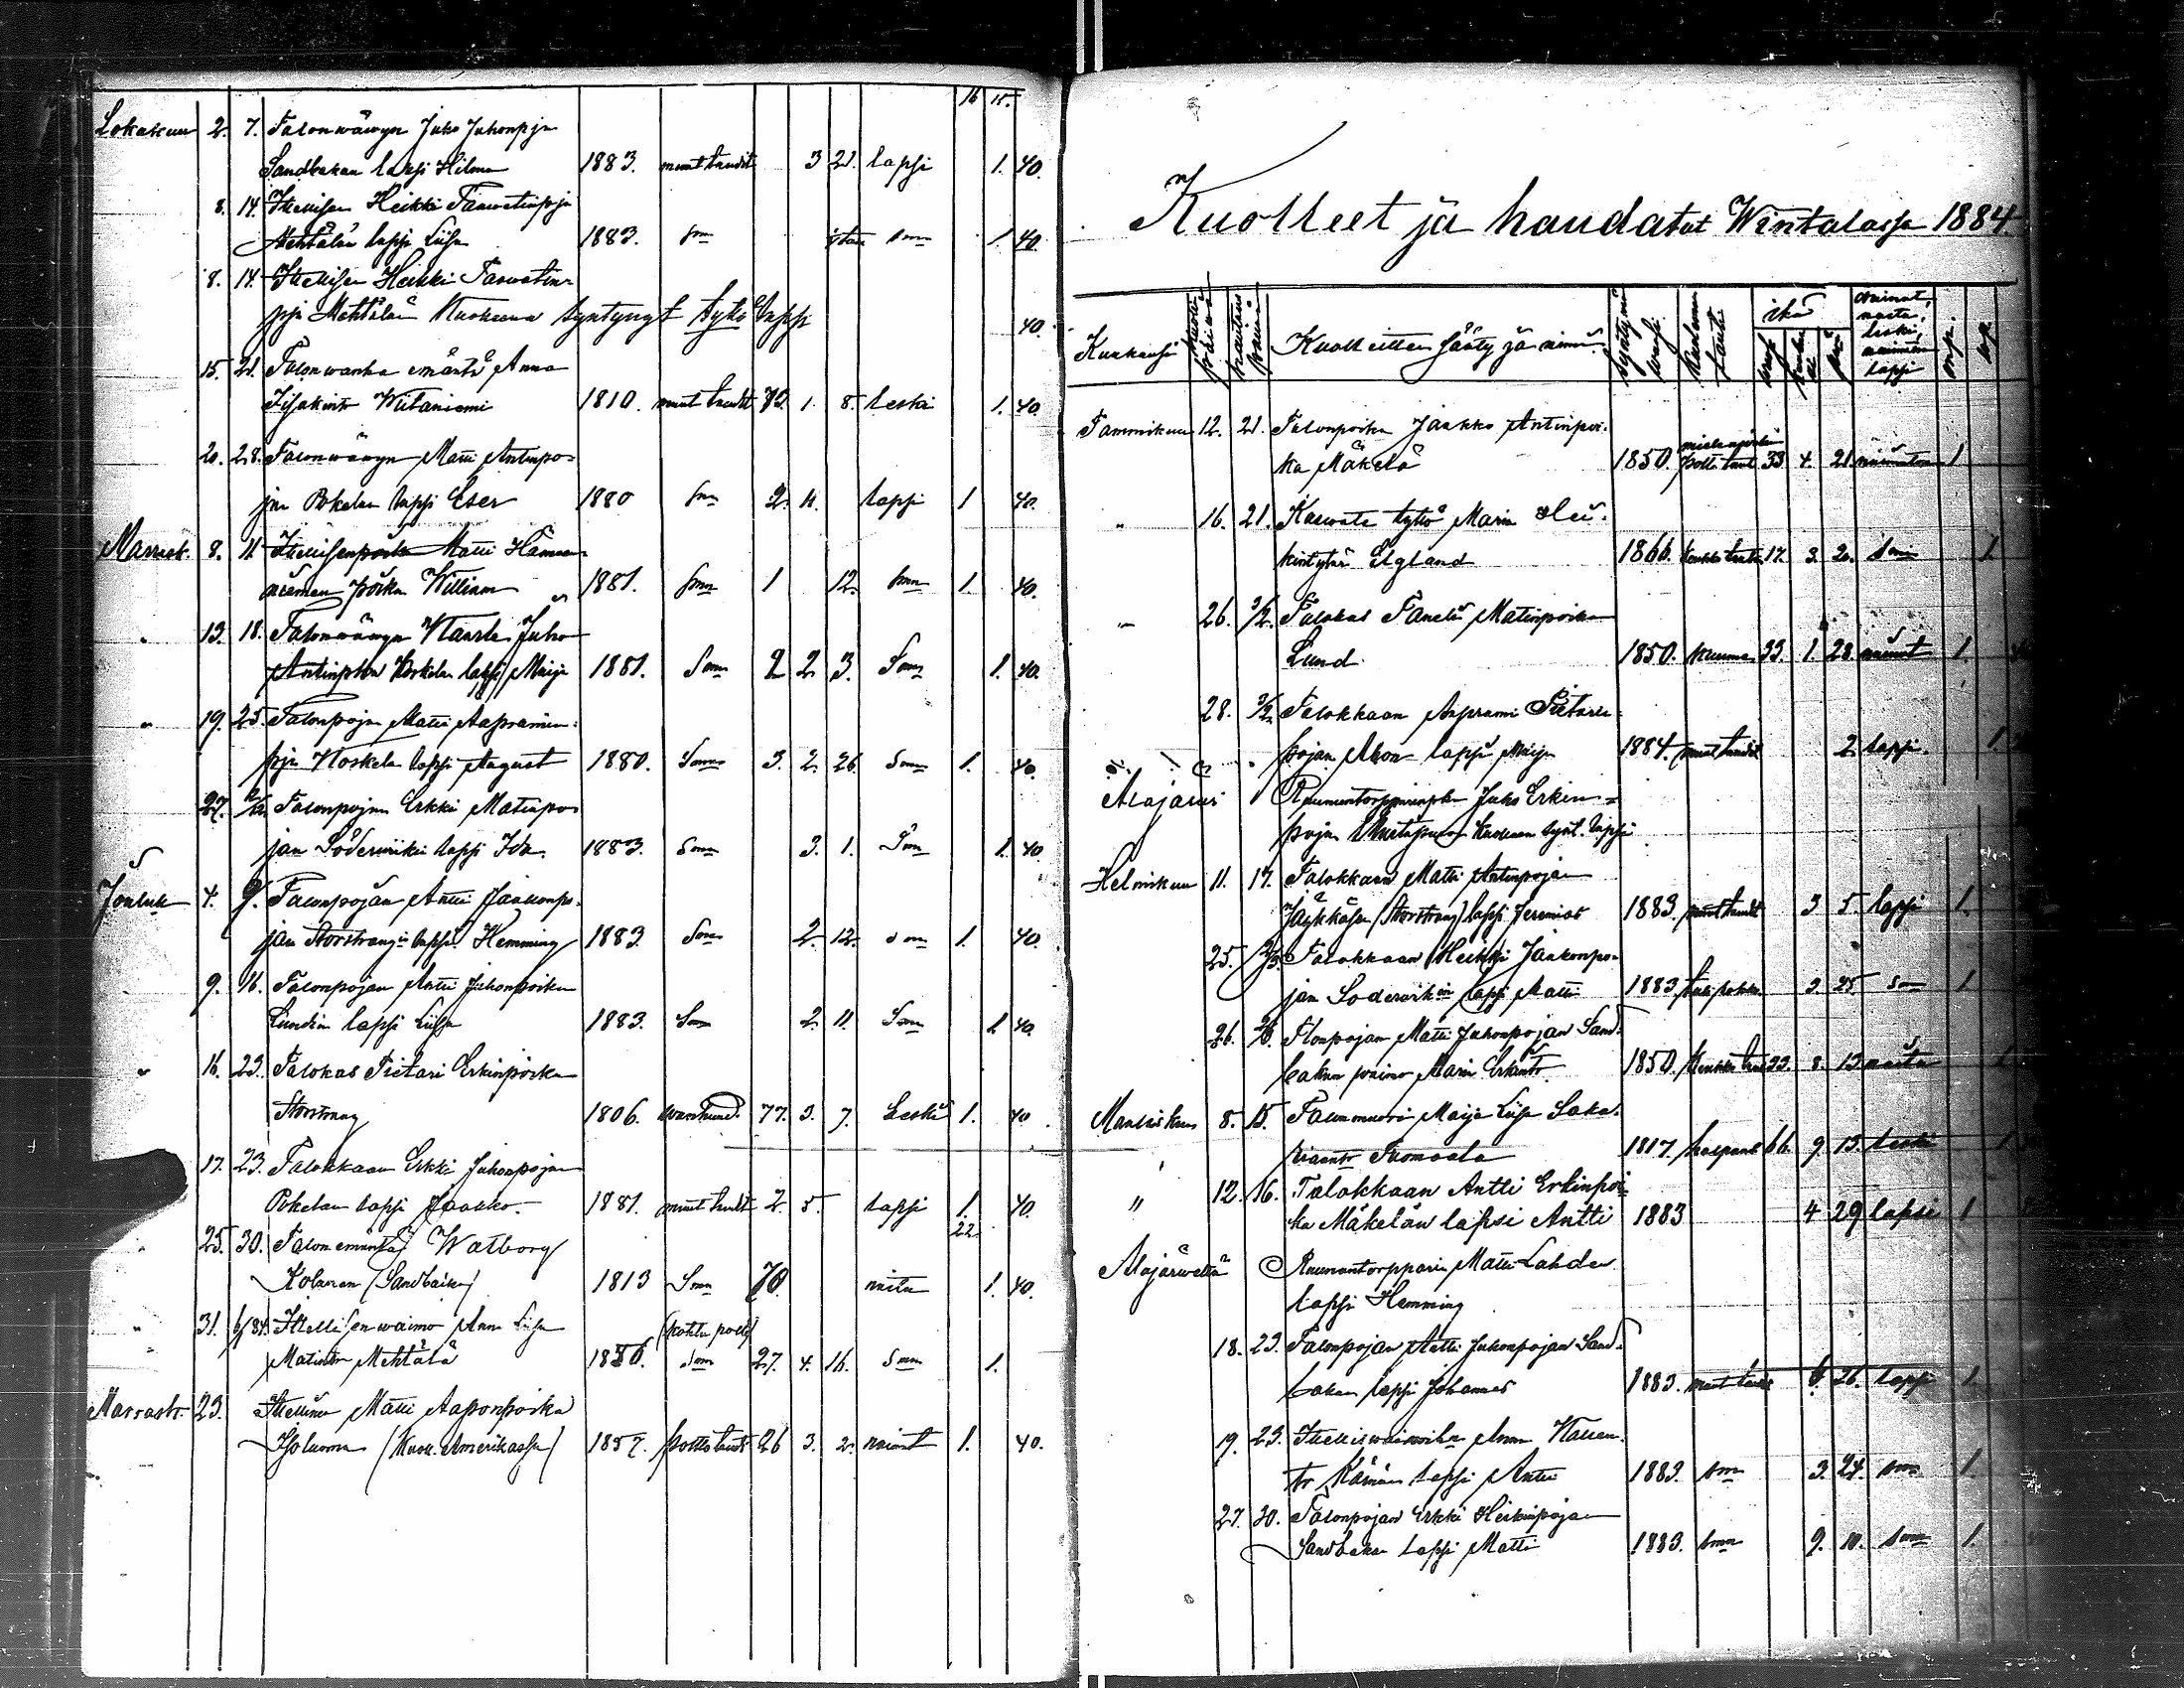 16 15.
Lokakuu 2. 7. Talonwäwyn Juho Juhonpjn
Sandbakan lapsi Hilma 1883. muut taudit 3 21. lapsi 1. 40.
8. 14. Itsellisen Heikki Taawetinpjn
Mehtälän lapsi Liisa 1883. smn smn 1. 40.
8. 14. Itsellisen Heikki Taawetin-
pjn Mehtälän Kuolleena syntynyt tytö lapsi 40.
15. 21. Talon wanha emäntä Anna
Wiitaniemi 1810. muut taudit 73. 1. 8. leski 1. 40.
20. 28. Talonwäwyn Matti Antinpo-
jan Pokelan lapsi Eser 1880 smn 2. 11. lapsi 1 40.
Marrask. 8. 11. Itsellisenpoika Matti
poika William 1881. smn 1 12. smn 1. 40.
" 13. 18. Talonwäwyn Kaarle Juho
Antinpjan Koskelan lapsi Maija 1881. Smn 2 2 3. Smn 1. 40.
" 19. 25. Talonpojan Matti Aapramin-
pjn Koskela lapsi August 1880. Smn 3. 2. 26. Smn 1. 40.
27. 2/12 Talonpojan Erkki Matinpo-
jan Söderwikin lapsi Ida. 1883. Smn 3. 1. Smn 1. 40.
Jouluk 4. 9. Talonpojan Antti Jaakonpo-
jan Storstrang'in lapsi Hemming 1883. Smn 2. 12. smn 1. 40.
9. 16. Talonpojan Antti Juhonpoika
Lundin lapsi Liisa 1883. Smn 2. 11. Smn 1 40.
" 16. 23. Talokas Pietari Erkinpoika
Storstrang 1806. wanhuud. 77. 3. 7. Leski 1. 40
17. 23. Talokkaan Erkki Juhonpojan
Pokelan lapsi Jaakko. 1881. muut taudit 2. 5. lapsi 1. 40.
22.
" 25. 30. Talon emäntä Walborg
Kolaman (Sandbacka) 1813 Smn 70. naitu 1. 40.
" 31. 6/84. Itsellisen waimo Anna Liisa (kohtu polte)
Matintr Mehtälä 1856. smn 27. 4. 16. smn 1.
Marrask. 23. Itsellinen Matti Aaponpoika
Isoluoma (Kuoll. Amerikassa) 1857. poltto taudit 26 3. 2. nainut 1. 40.
Kuolleet ja haudatut Wintalassa 1884.
Kuukausi kuolin päiwä hautaus päiwä Kuolleitten sääty ja nimi. syntymä wuosi. kuoleman tauti ikä wuos kuukau päiw nainut, naitu, leski, naimaton lapsi mp. wp.
Tammikuu 12. 21. Talonpoika Jaakko Antinpoi-
ka Mäkelä 1850. poltt taut 33 4. 21. naimaton 1
" 16. 21. Kaswate tyttö Maria Hei-
kintytär Elgland 1866. keuhko tauti 17. 3. 20. smn 1.
" 26. 3/2. Talokas Taneli Matinpoika
Lund. 1850. kuume 33. 1. 28. nainut 1.
28. 3/2. Talokkaan Aaprami Pietarin-
pojan Ahon lapsi Maija 1884. muut taudit 2. lapsi. 1.
Alajärwi Ruununtorpparinpka Juho Erkin-
pojan kuolleena synt. lapsi
Helmikuu 11. 17. Talokkaan Matti Antinpojan
(Storstrang) lapsi Jeremias 1883. muut taudit 3 5. lapsi 1.
25. 2/3. Talokkaan Heikki Jaakonpo-
jan Söderwikin lapsi Matti 1883. 3. 25. smn 1
26. Tlonpojan Matti Juhonpojan Sand-
bakan waimo Maria Erkintr. 1850. keuhko taut 33. 8. 13 naitu 1
Maaliskuu 8. 15. Talonmuori Maija Liisa Saka-
riaantr Tuomaala 1817. 66. 9. 15. leski 1
" 12. 16. Talokkaan Antti Erkinpoi-
ka Mäkelän lapsi Antti 1883 4 29 lapsi 1
Alajärweltä Ruununtorpparin Matti Lahden
lapsi Hemming
18. 23. Talonpojan Antti Juhonpojan Sand-
bakan lapsi Johannes 1883. muut taudit 6. 26. lapsi 1.
19. 23. Anna
tr lapsi Antti 1883. smn 3. 24. smn 1.
27. 30. Talonpojan Erkki Heikinpojan
Sandbakan lapsi Matti 1883. smn 9. 10. smn 1.